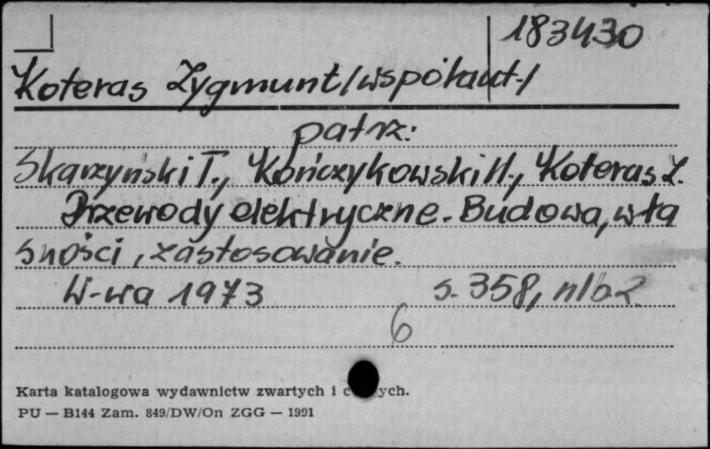 183430
Koteras Zygmunt/współaut./
patrz:
Skarzyński T., Kończykowski H., Koteras Z.
Przewody elektryczne. Budowa, wła
sności, zastosowanie.
W-wa 1973 s. 358, nlb 2
6
Karta katalogowa wydawnictw zwartych i c ych.
PU — B144 Zam. 849/DW/On ZGG — 1991